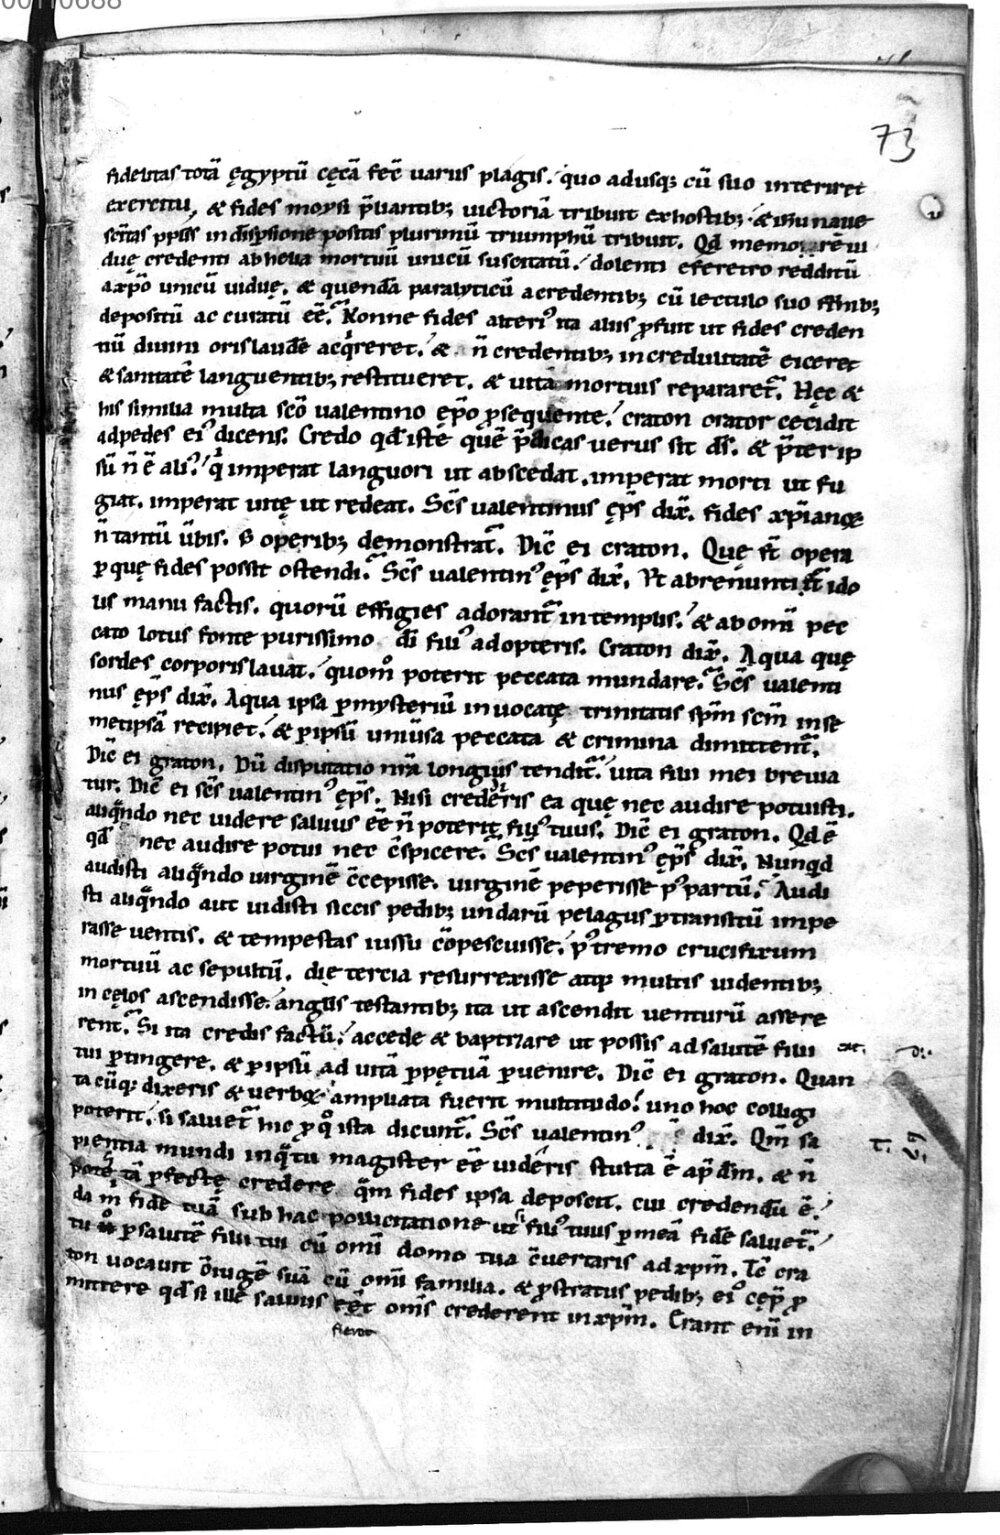 73
fidelitas totā ęgyptū cęcā fec̄ uariis plagis. quo adusq; cū suo interiret
exercitu, & fides moysi p̄liantib; uictoriā tribuit ex hostib; & ihu naue
sēitas ppīs in disp̄sione positis plurimū triumphū tribuit. Qd̄ memorarē ui
duę credenti ab helia mortuū unicū suscitatū. dolenti e feretro redditū
a xp̄o unicū uiduę. & quendā paralyticū a credentib; cū lectulo suo
depositū ac curatū ēē. Nonne fides alteri' ita aliis p̄fuit ut fides creden
tiū diuini oris laudē acq̇reret. & n̄ credentib; incredulitatē eiceret
& sanitatē languentib; restitueret. & uitā mortuis repararet̄. Hęc &
his similia multa sc̄o ualentino ęp̄o p̄sequente. craton orator cecidit
ad pedes ei' dicens. Credo qd̄ istē quē p̄dicas uerus sit ds̄. & p̄ter ip
sū n̄ ē ali'. q̇ imperat languori ut abscedat. imperat morti ut fu
giat. imperat uitę ut redeat. Sc̄s ualentinus ęp̄s dix̄. fides xp̄ianoꝝ
n̄ tantū ūbis. s; operib; demonstrat̄. Dic̄ ei craton. Quę st̄ opera
p quę fides possit ostendi. Sc̄s ualentin' ęp̄s dix̄. Vt abrenunties ido
lis manu factis. quorū effigies adorant̄ in templis. & ab omī pec
cato lotus fonte purissimo di fili' adopteris. Craton dix̄. Aqua quę
sordes corporis lauat. quom̊ poterit peccata mundare. Sc̄s ualenti
nus ęp̄s dix̄. Aqua ipsa p mysteriū inuocatę trinitatis sp̄m sc̄m in se
metipsā recipiet. & p ipsū uniūsa peccata & crimina dimittent̄.
Dic̄ ei graton. Dū disputatio nr̄a longius tendit̄. uita filii mei breuia
tur. Dic̄ ei sc̄s ualentin' ęp̄s. Nisi credideris ea quę nec audire potuisti.
aliqn̄do nec uidere saluus ēē n̄ poterit fili' tuus. Dic̄ ei graton. Qd̄ ē
qd̄ nec audire potui nec c̄spicere. Sc̄s ualentin' ęp̄s dix̄. Nunqd
audisti aliqn̄do uirginē c̄cepisse. uirginē peperisse p' partū. Audi
sti aliqn̄do aut uidisti siccis pedib; undarū pelagus p transitū impe
rasse uentis. & tempestas iussu c̄opescuisse. p' tremo crucifixum
mortuū ac sepultū. die tercia resurrexisse atq; multis uidentib;
in cęlos ascendisse. anglis testantib; ita ut ascendit uenturū assere
rent. Si ita credis factū. accede & baptizare ut possis ad salutē filii
tui p tingere. & p ipsū ad uitā p̄pętuā p uenire. Dic̄ ei graton. Quan
ta cūq; dixeris & uerboꝝ ampliata fuerit multitudo. uno hoc colligi
poterit. si saluet̄ hic p q̊ ista dicunt̄. Sc̄s ualentin' dix̄. Qm̄ sa
pientia mundi in q̄ tu magister ēē uideris stulta ē ap̄ dm̄. & n̄
potes tā p fecte credere q̄m fides ipsa deposcit. cui credendū ē.
da m̄ fidē tuā sub hac pollicitatione ut si fili' tuus p meā fidē saluet̄.
tu p salutē filii tui cū omī domo tua c̄uertaris ad xp̄m. Tc̄ cra
ton uocauit c̄iugē suā cū omī familia. & p̄stratus pedib; ei' cęp̄ p̄
mittere qd̄ si ille saluus omīs crederent in xp̄m. Erant enī in
fieret